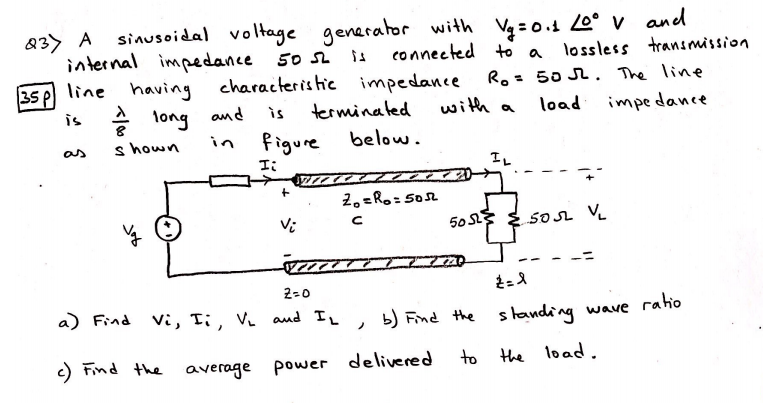 Q3> A sinusoidal voltage generator with Vg = 0.1 ∠0° V and
internal impedance 50 Ω is connected to a lossless transmission
35p line having characteristic impedance R₀ = 50 Ω. The line
is λ/8 long and is terminated with a load impedance
as shown in figure below.
Ii
IL
+
+
Z₀=R₀=50Ω
Vg
+
-
Vi
C
50Ω
50Ω
VL
-
-
z=0
z=l
a) Find Vi, Ii, VL and IL , b) Find the standing wave ratio
c) Find the average power delivered to the load.